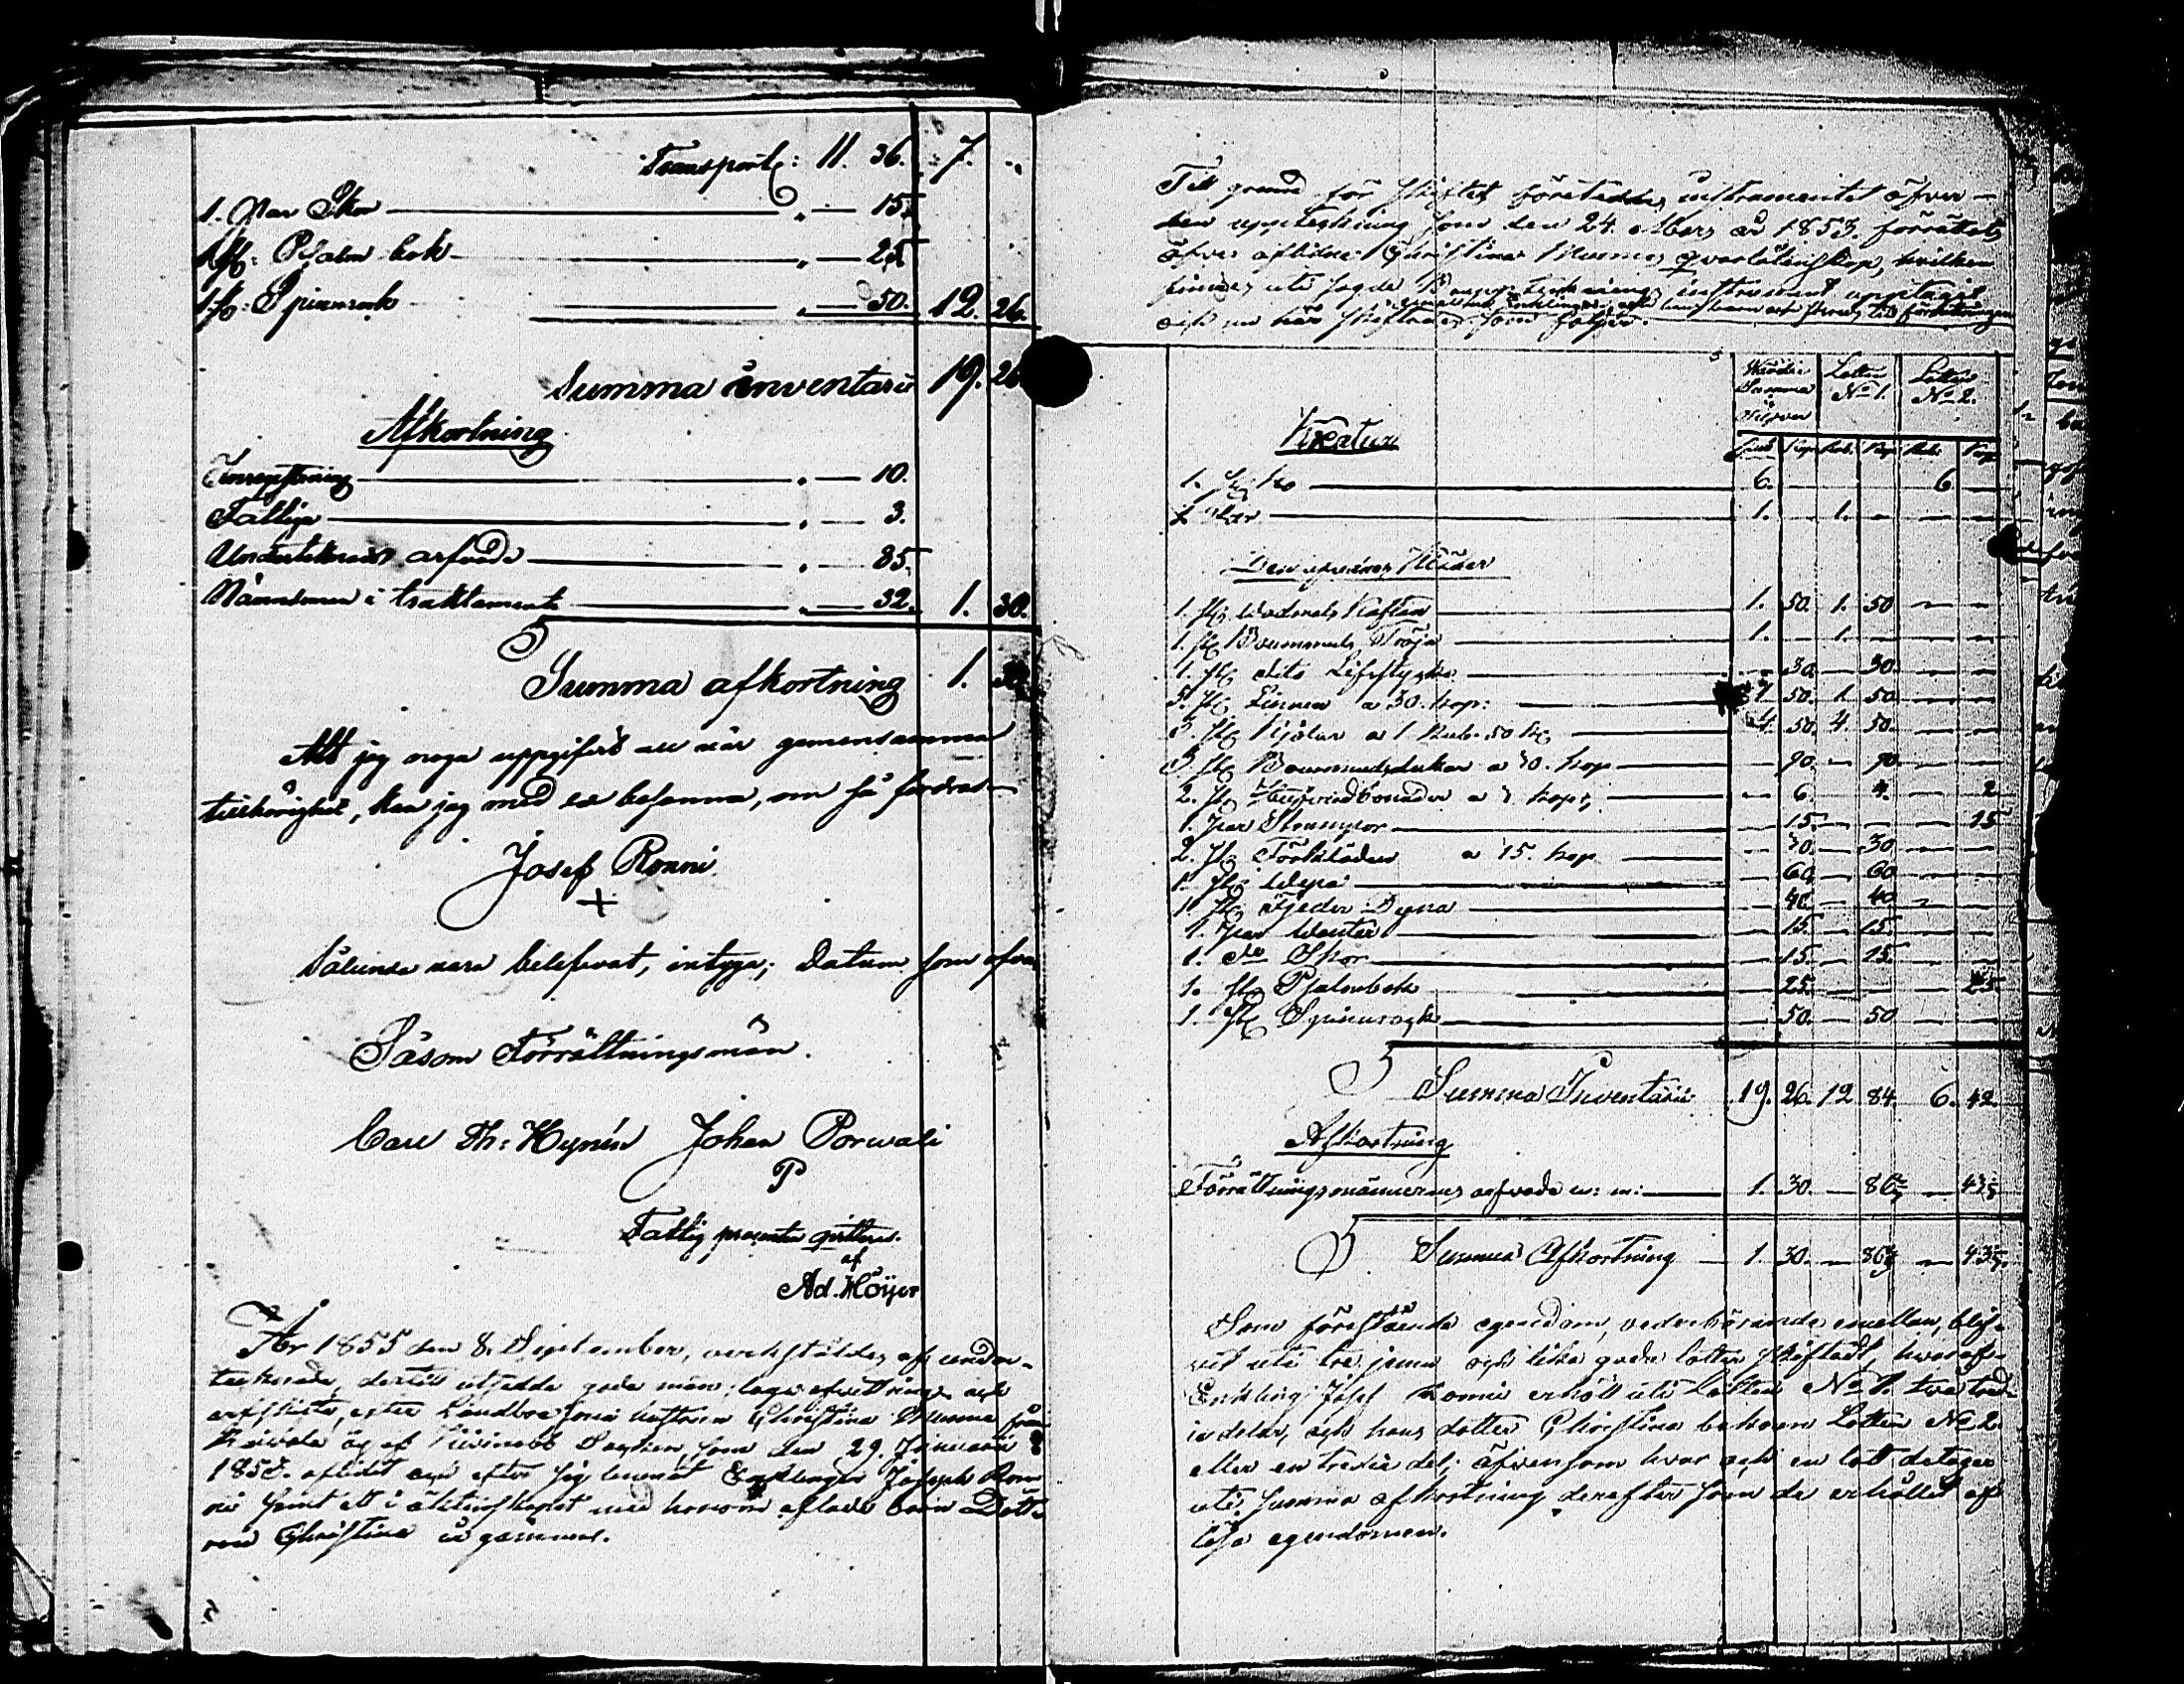 Transport: 11. 36. 7. "
1. Par Skor — " — 15.
1 st: Psalm bok — " — 25.
1 st: Spinnrock — " — 50. 12. 26.
Summa Inventarii 19. 26
Afkortning
— " — 10.
Fattige — " — 3.
Undertecknads arfvode — " — 85.
Männernes i traktamente — " — 32. 1. 30.
Summa afkortning 1. 30
Att jag noga uppgifvit all vår gemensamma
tillhörighet, kan jag med ed besanna, om så fordras
Josef Ronni
+
Sålunda vara belefvat, intyga; Datum som ofvan
Såsom Förrättningsmän.
Carl Th: Hynén Johan Porvali
P
Fattig procenten qvitteras
af
Ad. Höijer
År 1855 den 8. September, verkställdes af under-
tecknade, dertill utsedde gode män, laga afvittring och
arfskifte, efter Landboe hustrun Christina från
af Kivinebb Socken, som den 29. Januarii
1853. aflidit och efter sig lemnat Enklingen Joseph Ron
ni samt ett i äktenskapet med honom aflade barn Dott-
ren Christina år gammal.
Till grund för skiftet företeddes instrumentet öfver
den uppteckning som den 24. Mars år 1853. förrättats
öfver aflidne Christina qvarlåtenskap, hvilken
finnes uti sagde Bouppteckningsinstrument upptagit
emellan Enklingen och hans barn
och nu här skiftades som följer.
Värde Summa Silfver Lotten No 1. Lotten No 2.
Rub Kop Rub. Kop Rub. Kop
Kreatur
1. st Ko — 6. — 6 —
1. — 1. — 1. — — —
Den aflidnes Kläder
1. st Wadmals Kaftan — 1. 50. 1. 50 — —
1. st Bommuls Tröja — 1. — 1. — — —
1. st dito Lifstycke — — 30. — 30. — —
5. st Linnen a 30. kop: — 1 50. 1. 50. — —
3. st Kjolar a 1 Rub. 50 k — 4. 50. 4. 50. — —
3 st Bommulsdukar a 30. kop — — 90. — 90 — —
2. st a 3. kop — — 6. — 4. — 2
1. par Strumpor — — 15. — — — 15
2. st Förkläden a 15. kop — — 30. — 30 — —
1. st Wepa — — 60. — 60 — —
1. st Fjeder Dyna — — 40. — 40 — —
1. par Wantar — — 15. — 15. — —
1. do Skor — — 15. — 15. — —
1. st Psalmbok — — 25. — — — 25
1. st Spinnrock — — 50. — 50 — —
Summa Inventarii 19. 26. 12 84. 6. 42.
Afkortning
Förrättningsmännernas arfvode m: m: — 1. 30. — 86⅔ — 43⅓
Summa Afkortning — 1. 30. — 86⅔ — 43⅓
Som förestående egendom, vederbörande emellan, blif-
vit uti tre jemna och lika goda lotter skiftadt, hvaraf
Enkling Josef Ronni erhöll uti Lotten No 1. två tred-
jedelar, och hans dotter Christina bekom Lotten No 2
eller en tredje del; äfvensom hvar och en lott deltager
uti summa afkortning derefter som de erhållit af
lösa egendomen.